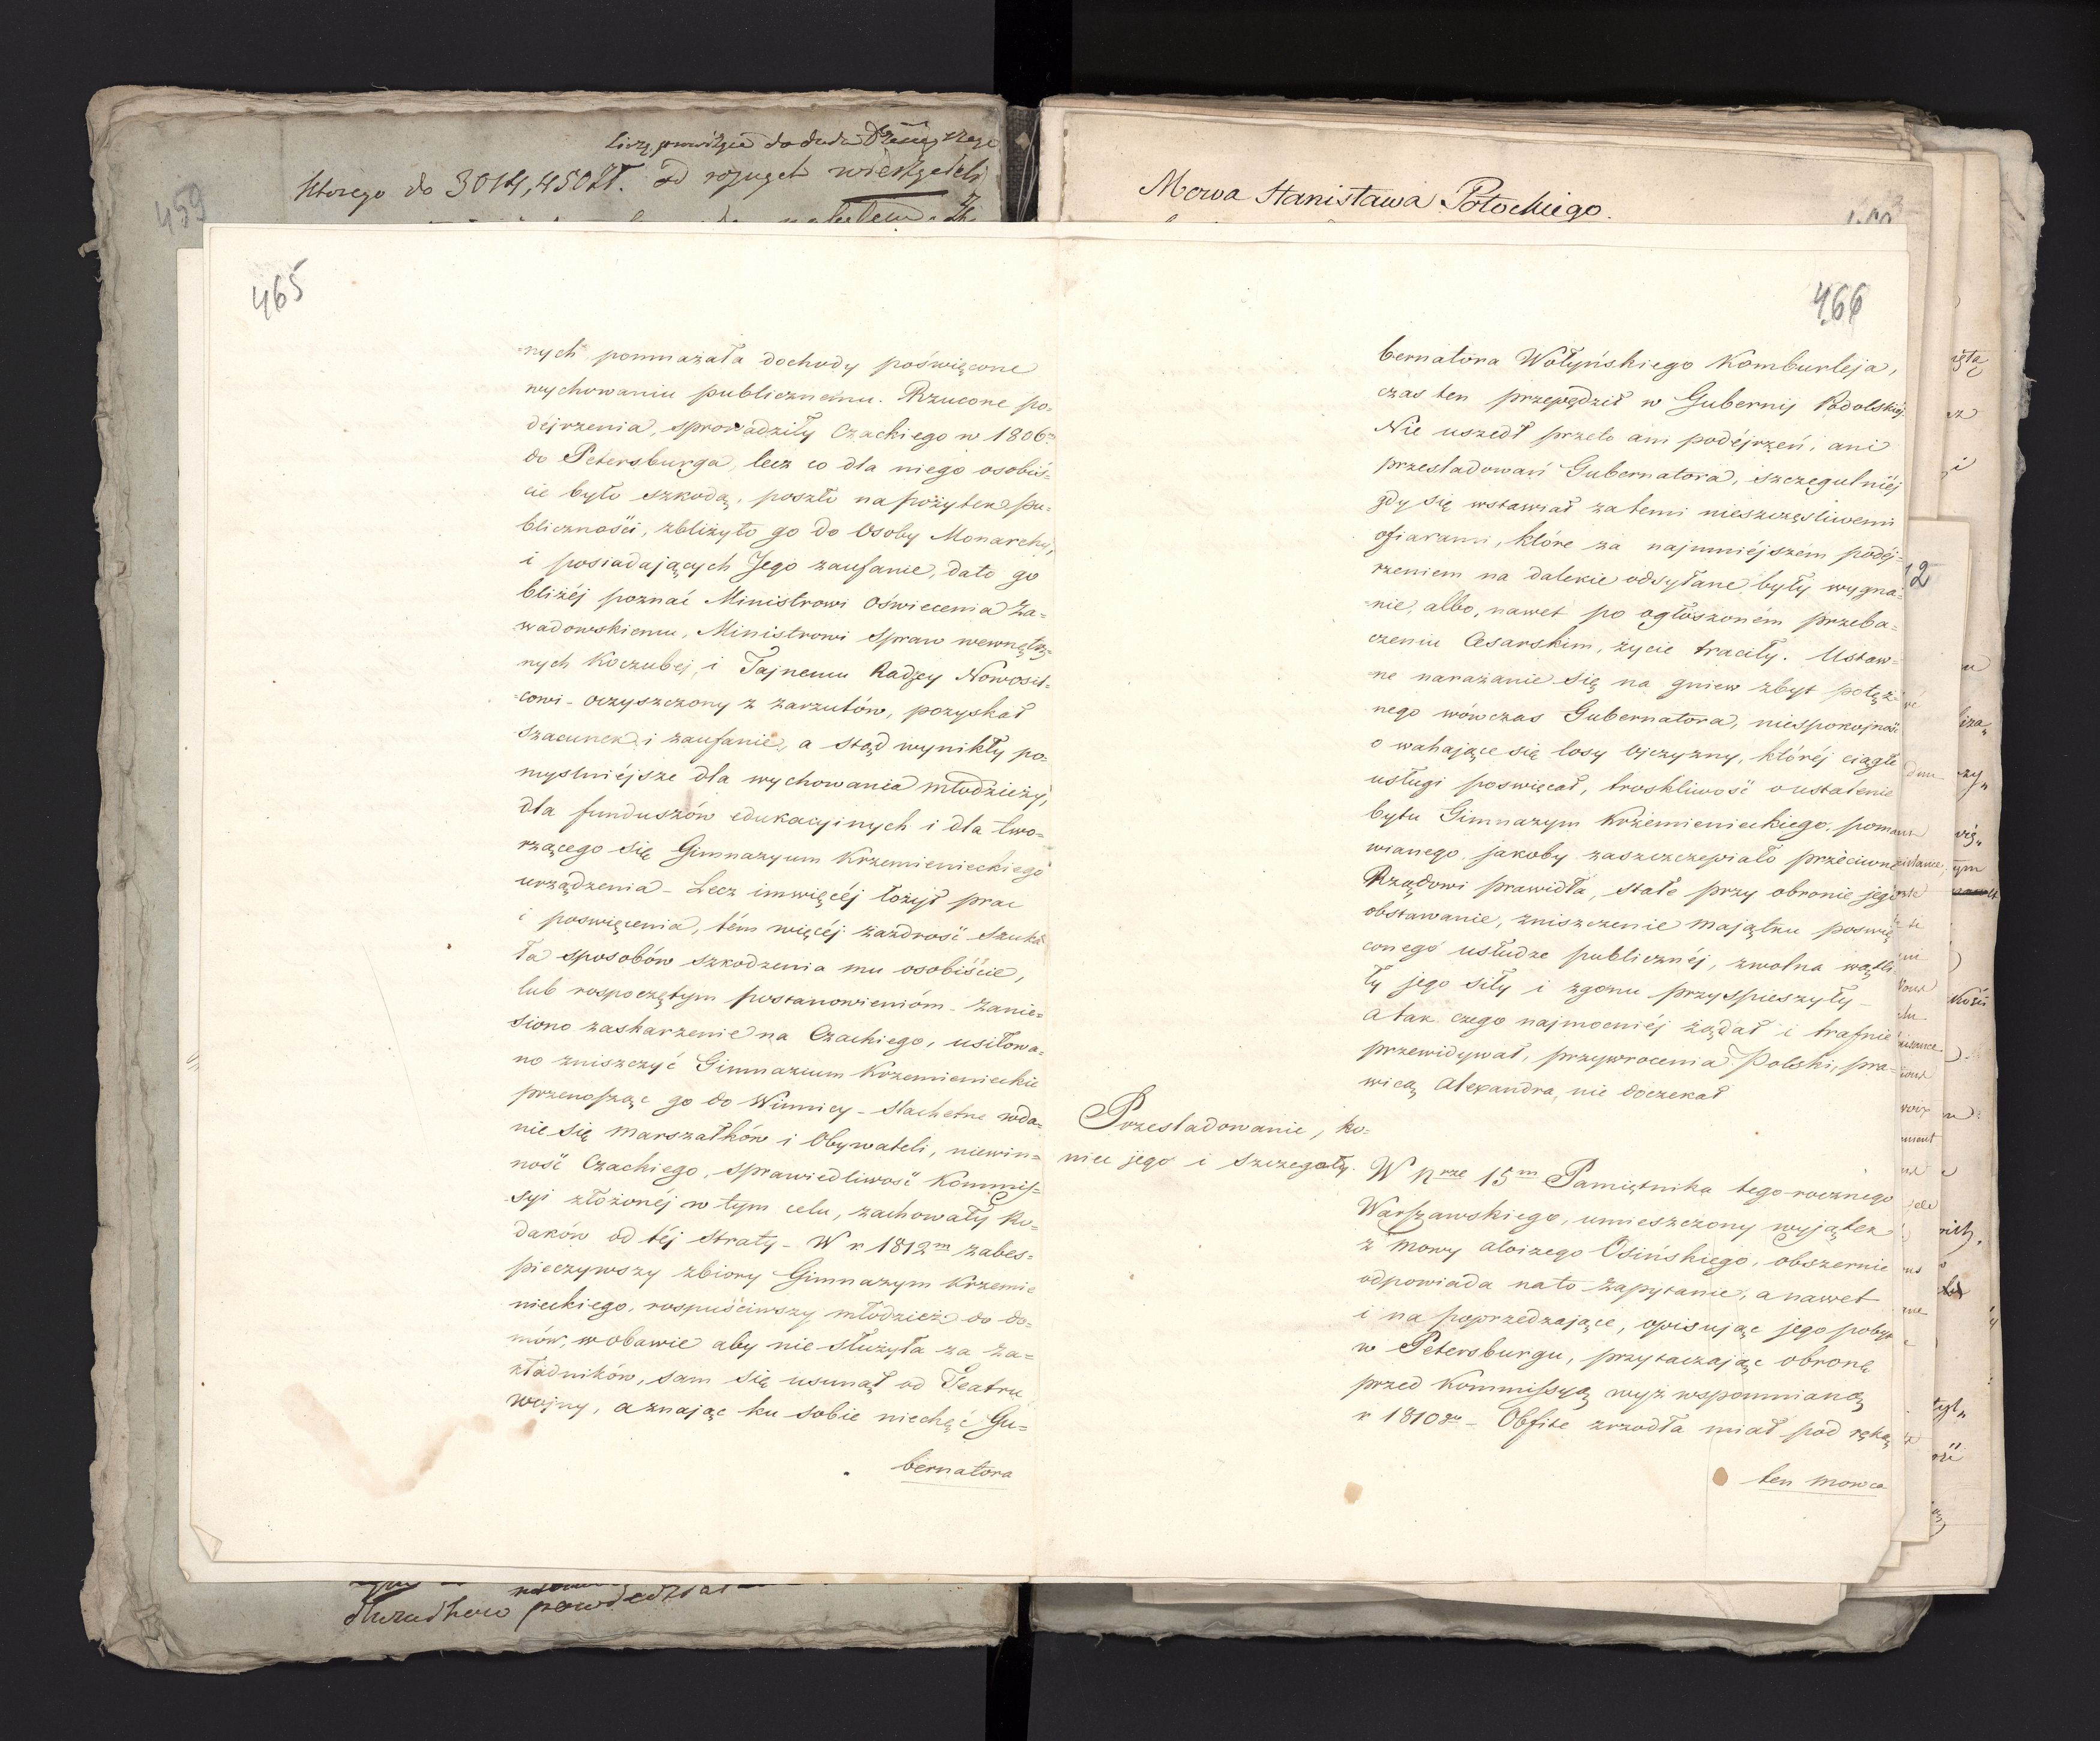 459
którego do 3014,450 Zł. Od
Mowa Stanisława Potockiego.
465
=nych pomnażała dochody poświęcone
wychowaniu publicznému. Rzucone po=
déjrzenia, sprowadziły Czackiego w 1806
do Petersburga, lecz co dla niego osobiś=
cie było szkodą, poszło na pożytek pu=
bliczności, zbliżyło go do Osoby Monarchy,
i posiadających Jego zaufanie, dało go
bliżéj poznać Ministrowi Oświecenia Za=
wadowskiemu, Ministrowi Spraw wewnętrz=
nych Koczubej, i Tajnemu Radzcy Nowosil=
=cowi - oczyszczony z zarzutów, pozyskał
szacunek i zaufanie, a stąd wynikły po=
myslniéjsze dla wychowania młodzieży,
dla funduszów edukacyinych i dla two=
rzącego się Gimnazyum Krzemienieckiego
urządzenia - Lecz im więcéj łożył prac
i poswięcenia, tém więcéj zazdrość szuka
ła sposobów szkodzenia mu osobiście,
lub rospoczętym postanowienióm - Zanie=
siono zaskarzenie na Czackiego, usiłowa=
no zniszczyć Gimnazium Krzemienieckie
przenosząc go do Winnicy - Slachetne wda=
nie się Marszałków i Obywateli, niewin=
ność Czackiego, sprawiedliwość Kommis=
syi złożonéj w tym celu, zachowały Ro=
daków od téj straty - W r 1812m zabes=
pieczywszy zbiory Gimnazym Krzemie
nieckiego, rospuściwszy młodzież do do=
mów, w obawie aby nie służyła za za=
kładników, sam się usunął od Teatru
wojny, a znając ku sobie niechęć Gu=
bernatora
466
bernatora Wołyńskiego Komburleja,
czas ten przepędził w Gubernij Podolskiéj
Nie uszedł przeto ani podéjrzeń, ani
przesladowań Gubernatora, szczegulniéj
gdy się wstawiał za temi nieszczęsliwemi
ofiarami, które za najmniéjszém podéj=
rzeniem na dalekie odsyłane były wygna=
=nie, albo, nawet po ogłoszoném przeba=
czeniu Cesarskim, życie traciły. Ustaw=
=ne narażanie się na gniew zbyt potęż=
nego wówczas Gubernatora, niespokojność
o wahające się losy Ojczyzny, któréj ciągłe
usługi poswięcał, troskliwość o ustalenie
bytu Gimnazym Krzemienieckiego, poma
wianego jakoby zaszczepiało przeciwne
Rządowi prawidła, stałe przy obronie jego
obstawanie, zniszczenie majątku poswię
conego usłudze publicznéj, zwolna wątli
ły jego siły i zgonu przyspieszyły -
a tak czego najmocniéj żądał i trafnie
przewidywał, przywrocenia Polski, pra=
wicą Alexandra, nie doczekał
Przesladowanie, ko=
niec jego i szczegoły.
W Nrze 15m Pamiętnika tegorocznego
Warszawskiego, umieszczony wyjątek
z Mowy Aloizego Osińskiego, obszernie
odpowiada na to zapytanie, a nawet
i na poprzedzające, opisując jego pobyt
w Petersburgu, przytaczając obronę
przed Kommissyą wyż wspomnianą
r 1810go - Obfite zrzodła miał pod ręką
ten mowca
12